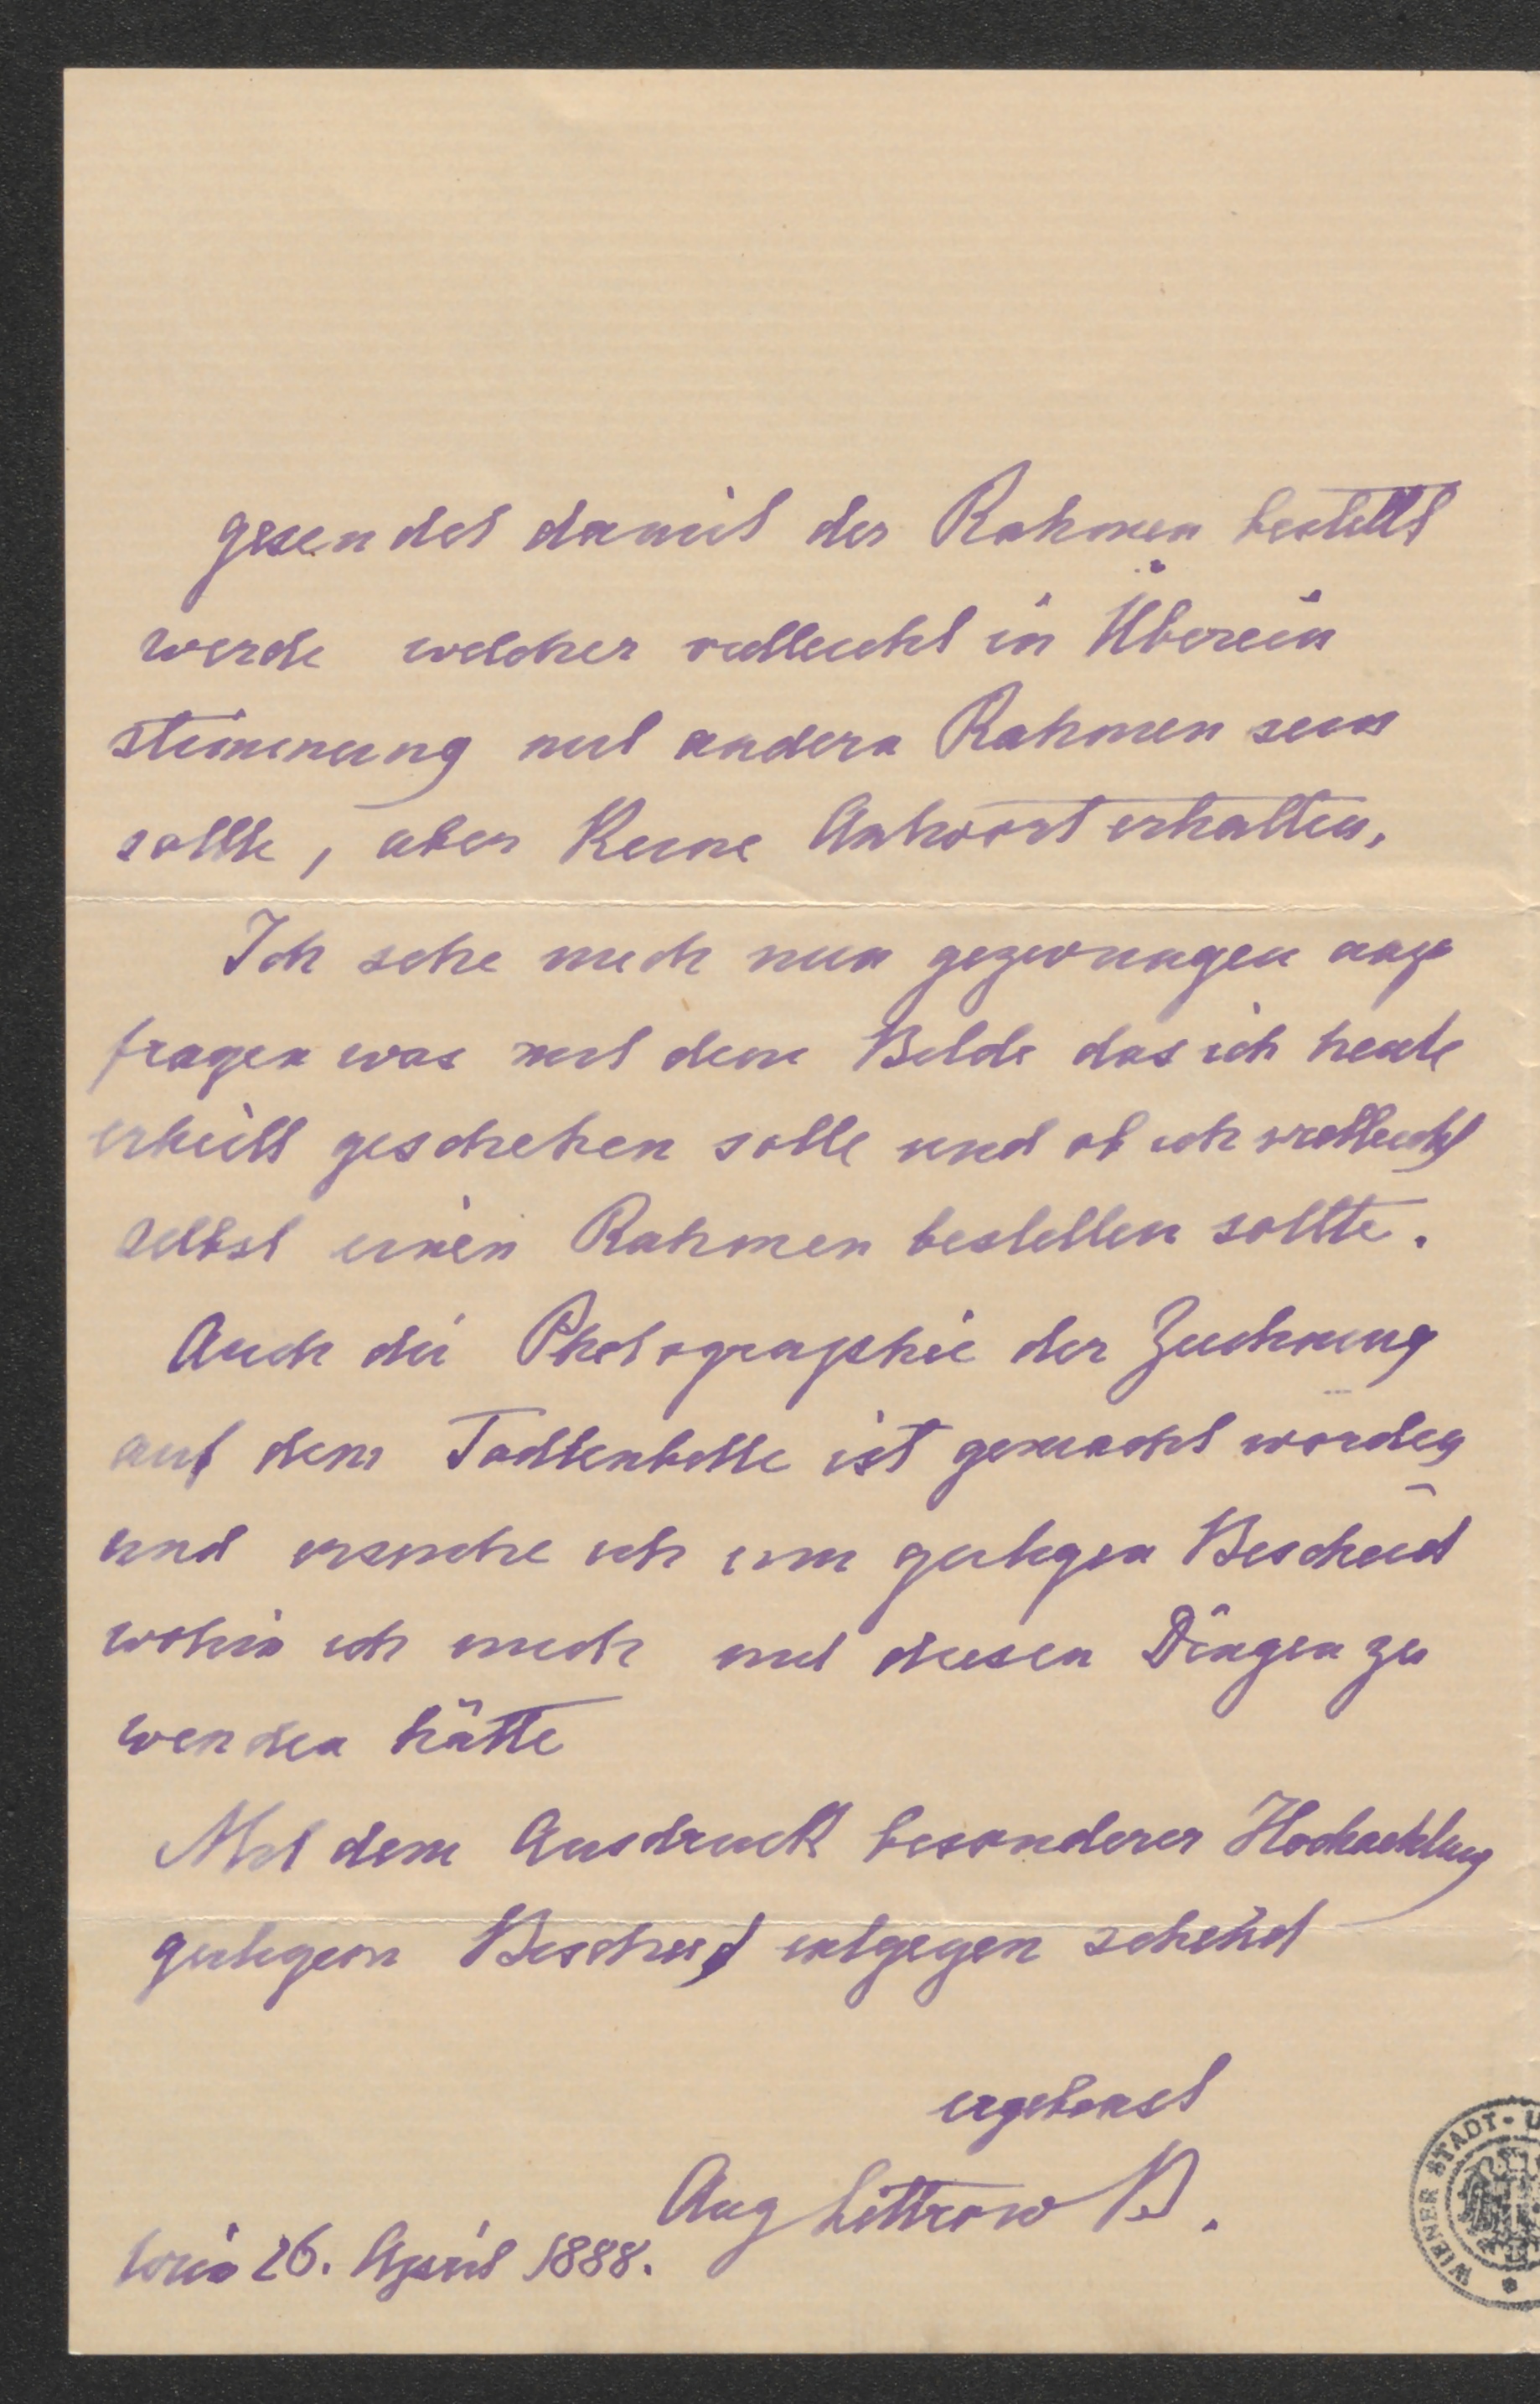 gesendet damit der Rahmen bestellt
werde welcher vielleicht in Überein
stimmung mit andern Rahmen sein
sollte, aber keine Antwort erhalten.
Ich sehe mich nun gezwungen anzu
fragen was mit dem Bilde das ich heute
erhielt geschehen solle und ob ich vielleicht
selbst einen Rahmen bestellen sollte.
Auch die Photographie der Zeichnung
auf dem Todtenbette ist gemacht worden
und ersuche ich um gütigen Bescheid
wohin ich mich mit diesen Dingen zu
wenden hätte
Mit dem Ausdruck besonderer Hochachtung
gütigem Bescheid entgegen sehend
ergebenst
Aug Littrow B.
Wien 26. April 1888.
WIENER STADT-